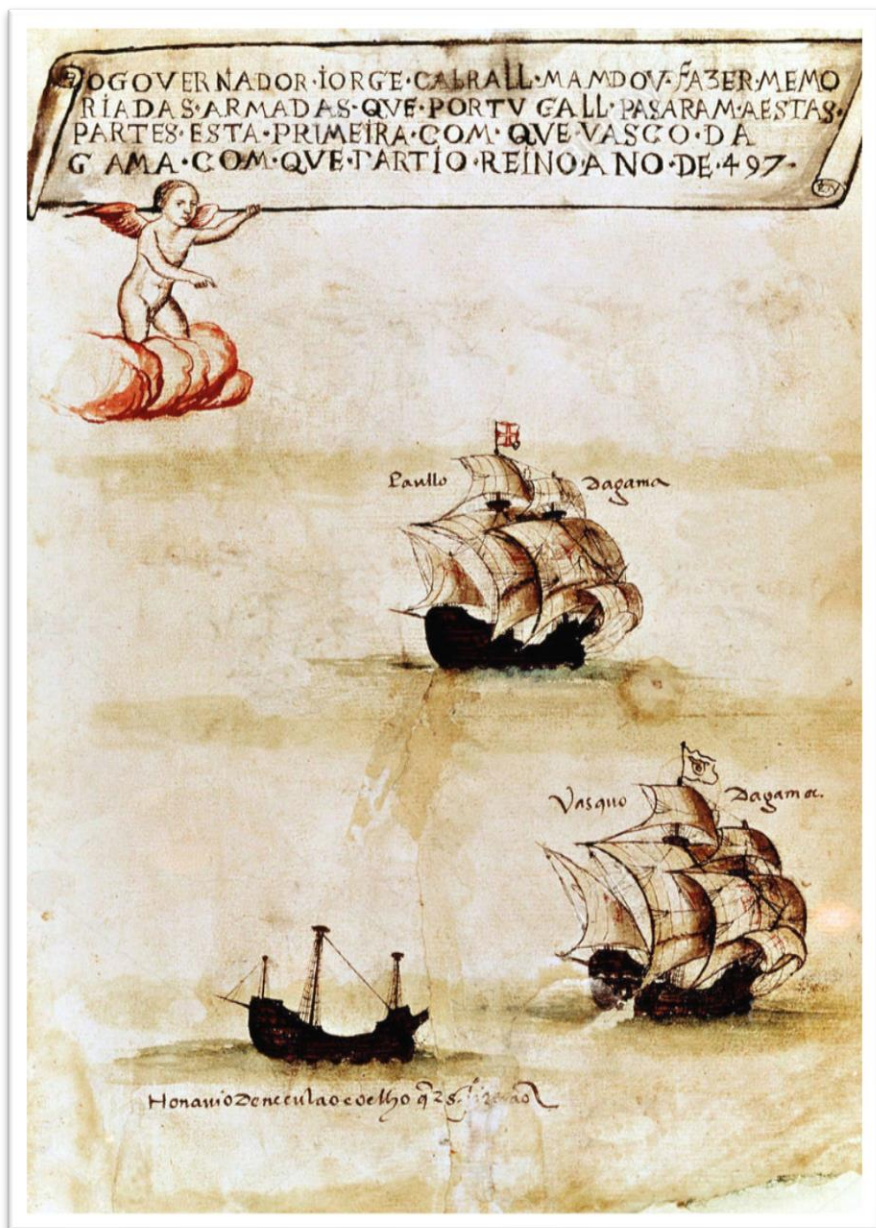 OGOVERNADOR·IORGE·CABRALL·MAMDOV·FAZER·MEMO
RIADAS·ARMADAS·QVE·PORTVGALL·PASARAM·AESTAS·
PARTES·ESTA·PRIMEIRA·COM·QVE·VASCO·DA
GAMA·COM·QVE·PARTIO·REINO·ANO·DE·497·
Paullo Dagama
Vasquo Dagama.
Honauio De